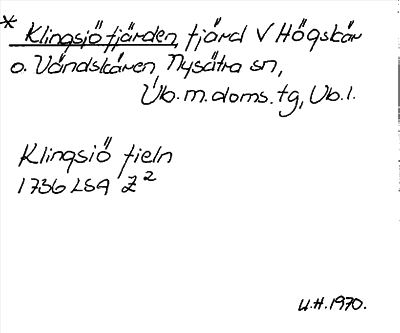 * Klingsjöfjärden, fjärd V Högskär
o. Vändskären Nysätra sn,
Üb. m. doms. tg, Vb. l.
Klingsiö fieln
1736 LSA Z²
U.H. 1970.